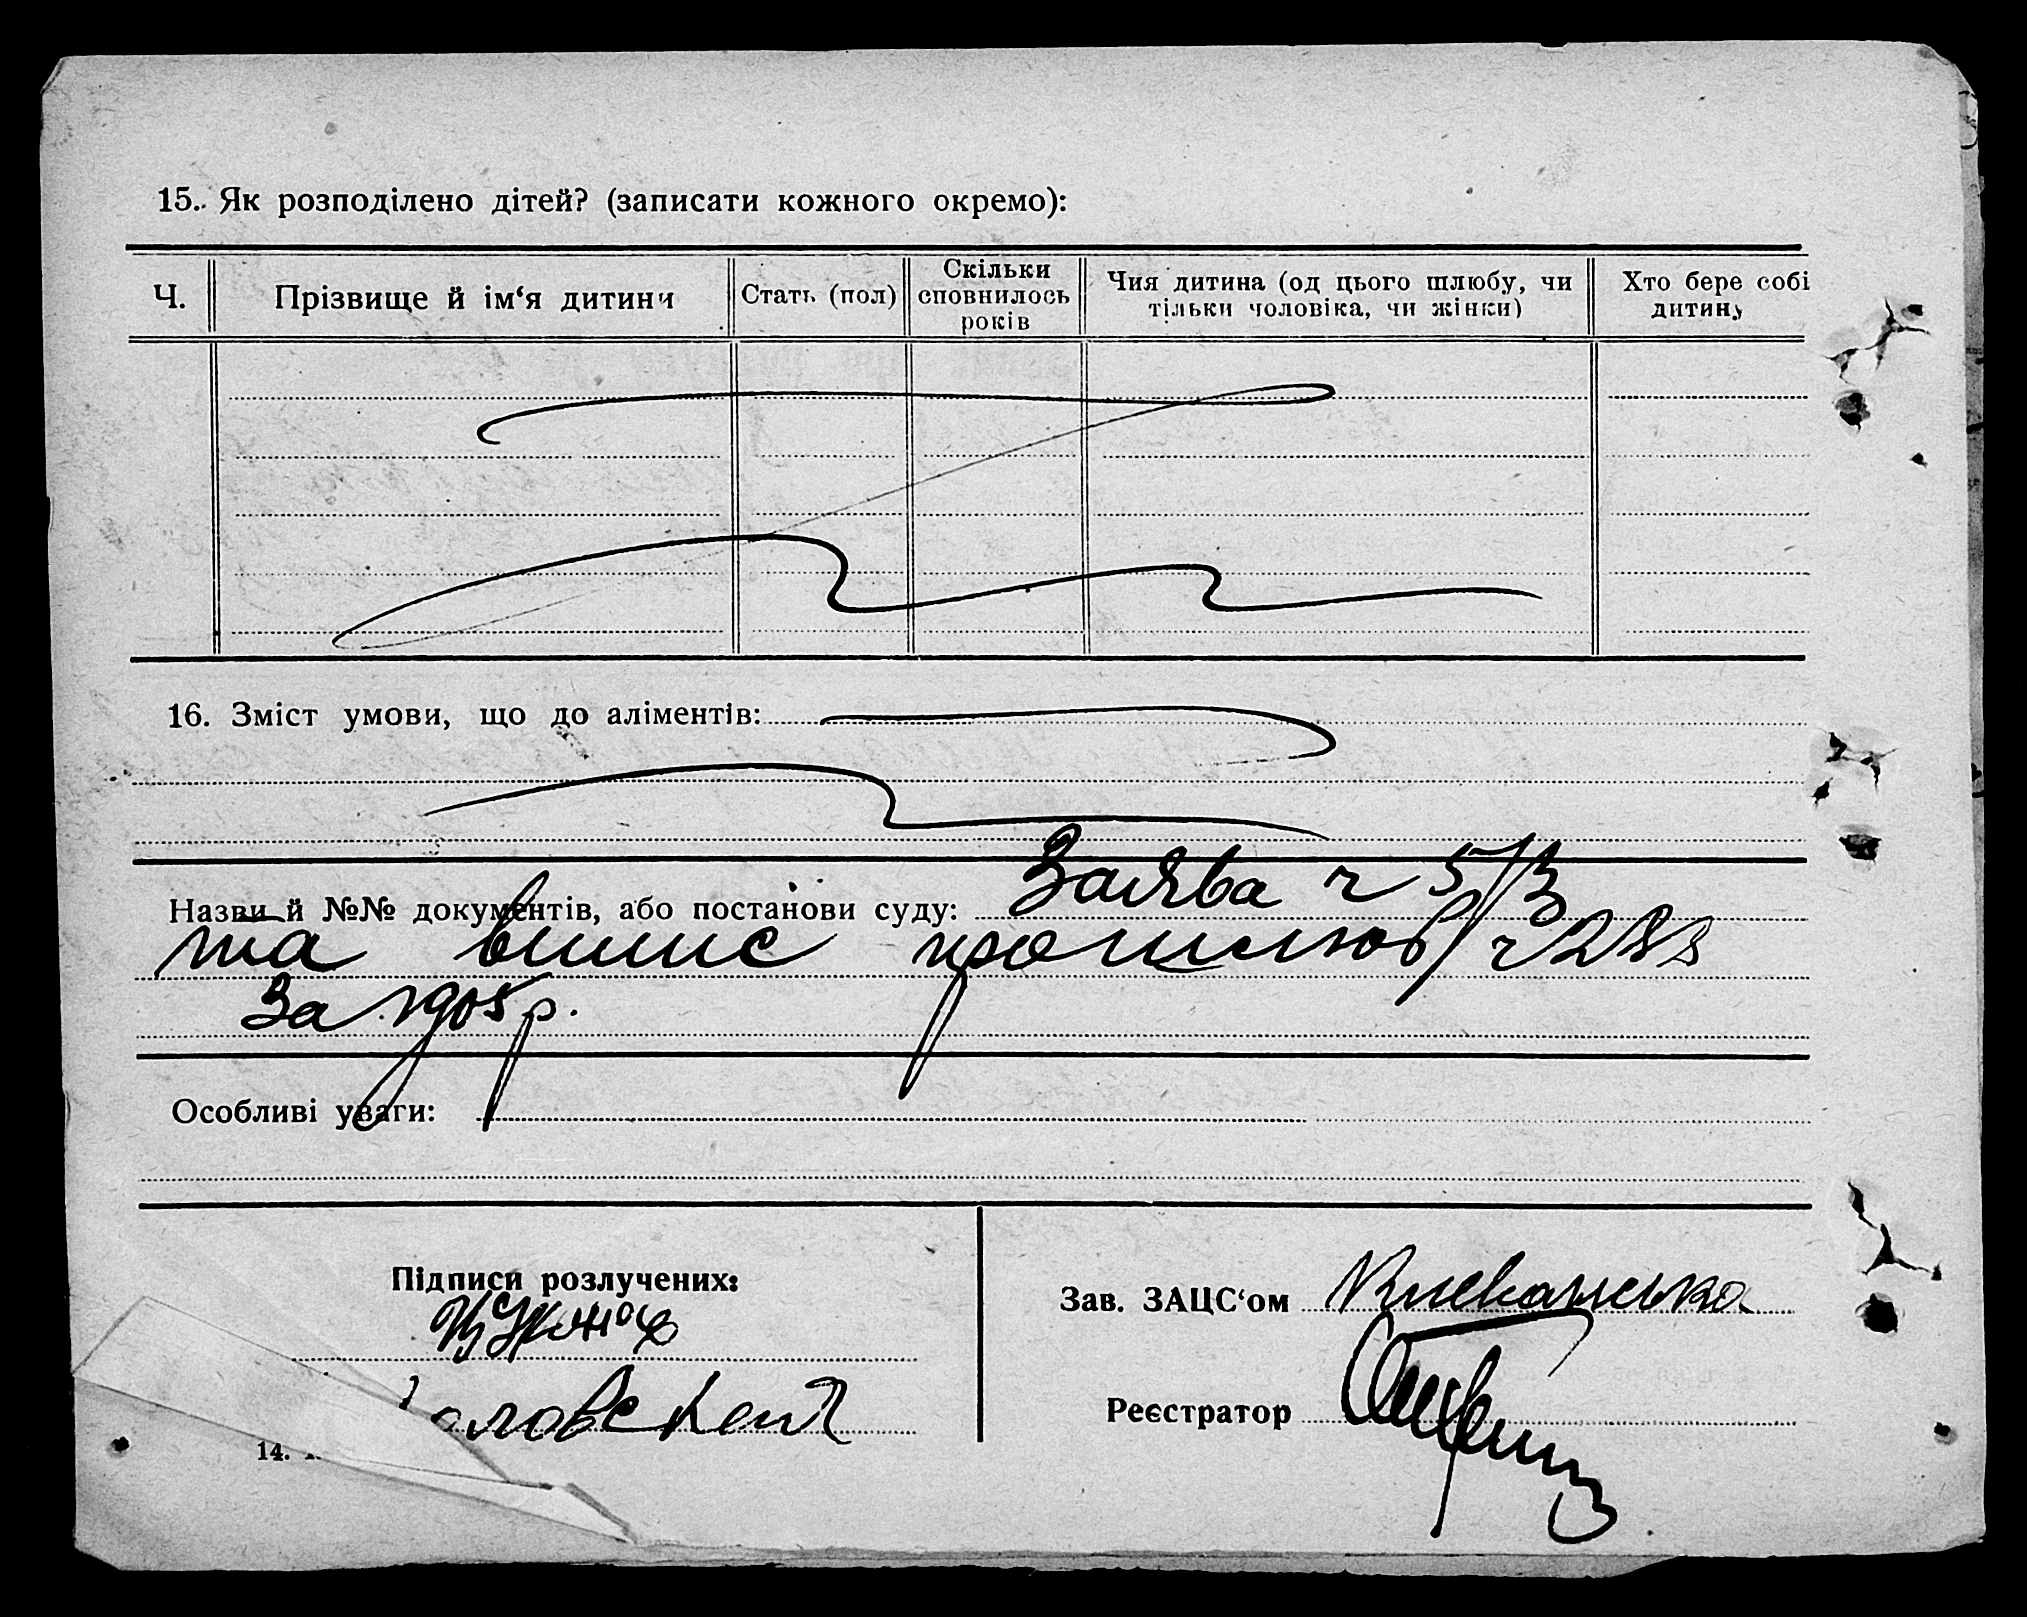 15. Як розподілено дітей? (записати кожного окремо):
Ч.
Прізвище й ім‘я дитини
Стать (пол)
Скільки сповнилось років
Чия дитина (од цього шлюбу, чи тільки чоловіка, чи жінки)
Хто бере собі дитину
16. Зміст умови, що до аліментів:
Назви й №№ документів, або постанови суду: Заява ч 5/3
та випис про шлюб ч 288
За 1905 р.
Особливі уваги:
Підписи розлучених:
Зав. ЗАЦС‘ом
Реєстратор
14.